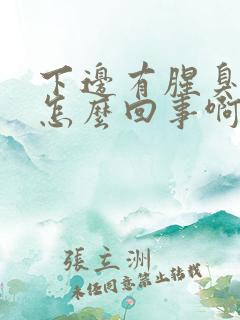 下邊有腥臭
怎麼回事啊
張立洲
未經同意禁止轉載